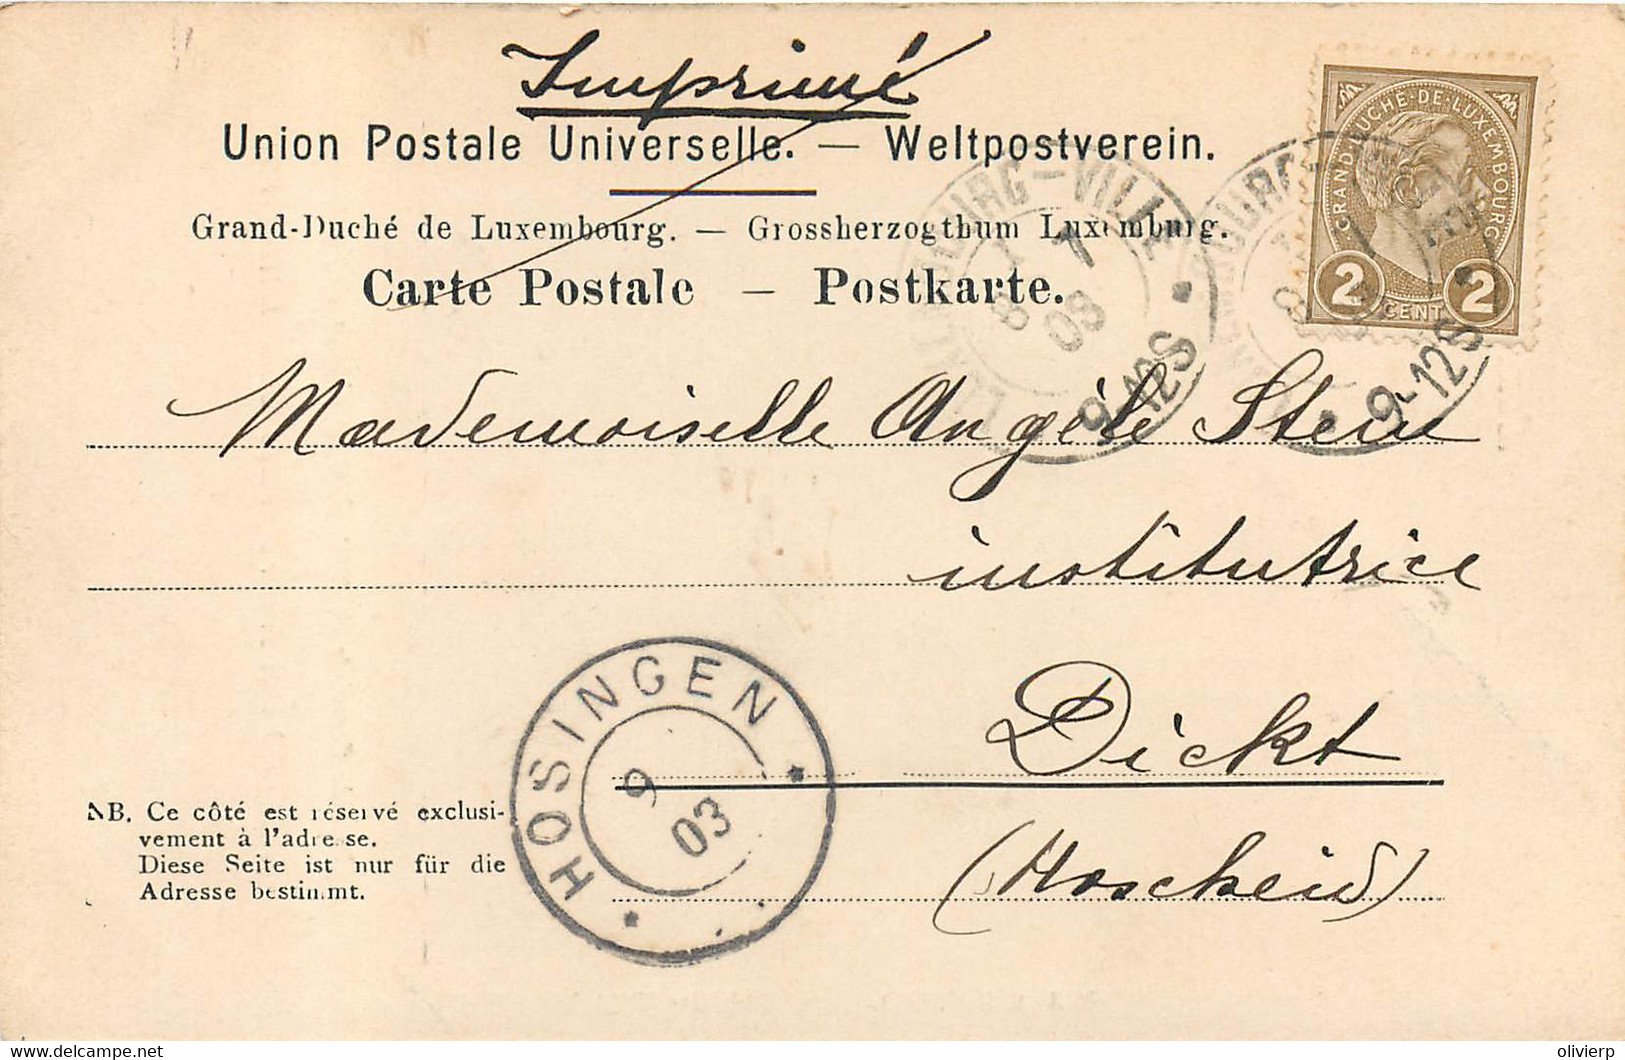 Imprimé
Union Postale Universelle. — Weltpostverein.
Grand-Duché de Luxembourg. — Grossherzogthum Luxemburg.
Carte Postale — Postkarte.
GRAND-DUCHÉ-DE-LUXEMBOURG
2 CENT 2
BOURG-VILLE
8 1 7
03
9-12S
9-12S
Mademoiselle Angèle Stein
institutrice
Dickt
(Hoscheid)
HOSINGEN
9
03
NB. Ce côté est réservé exclusi-
vement à l'adresse.
Diese Seite ist nur für die
Adresse bestimmt.
http://www.delcampe.net
olivierp